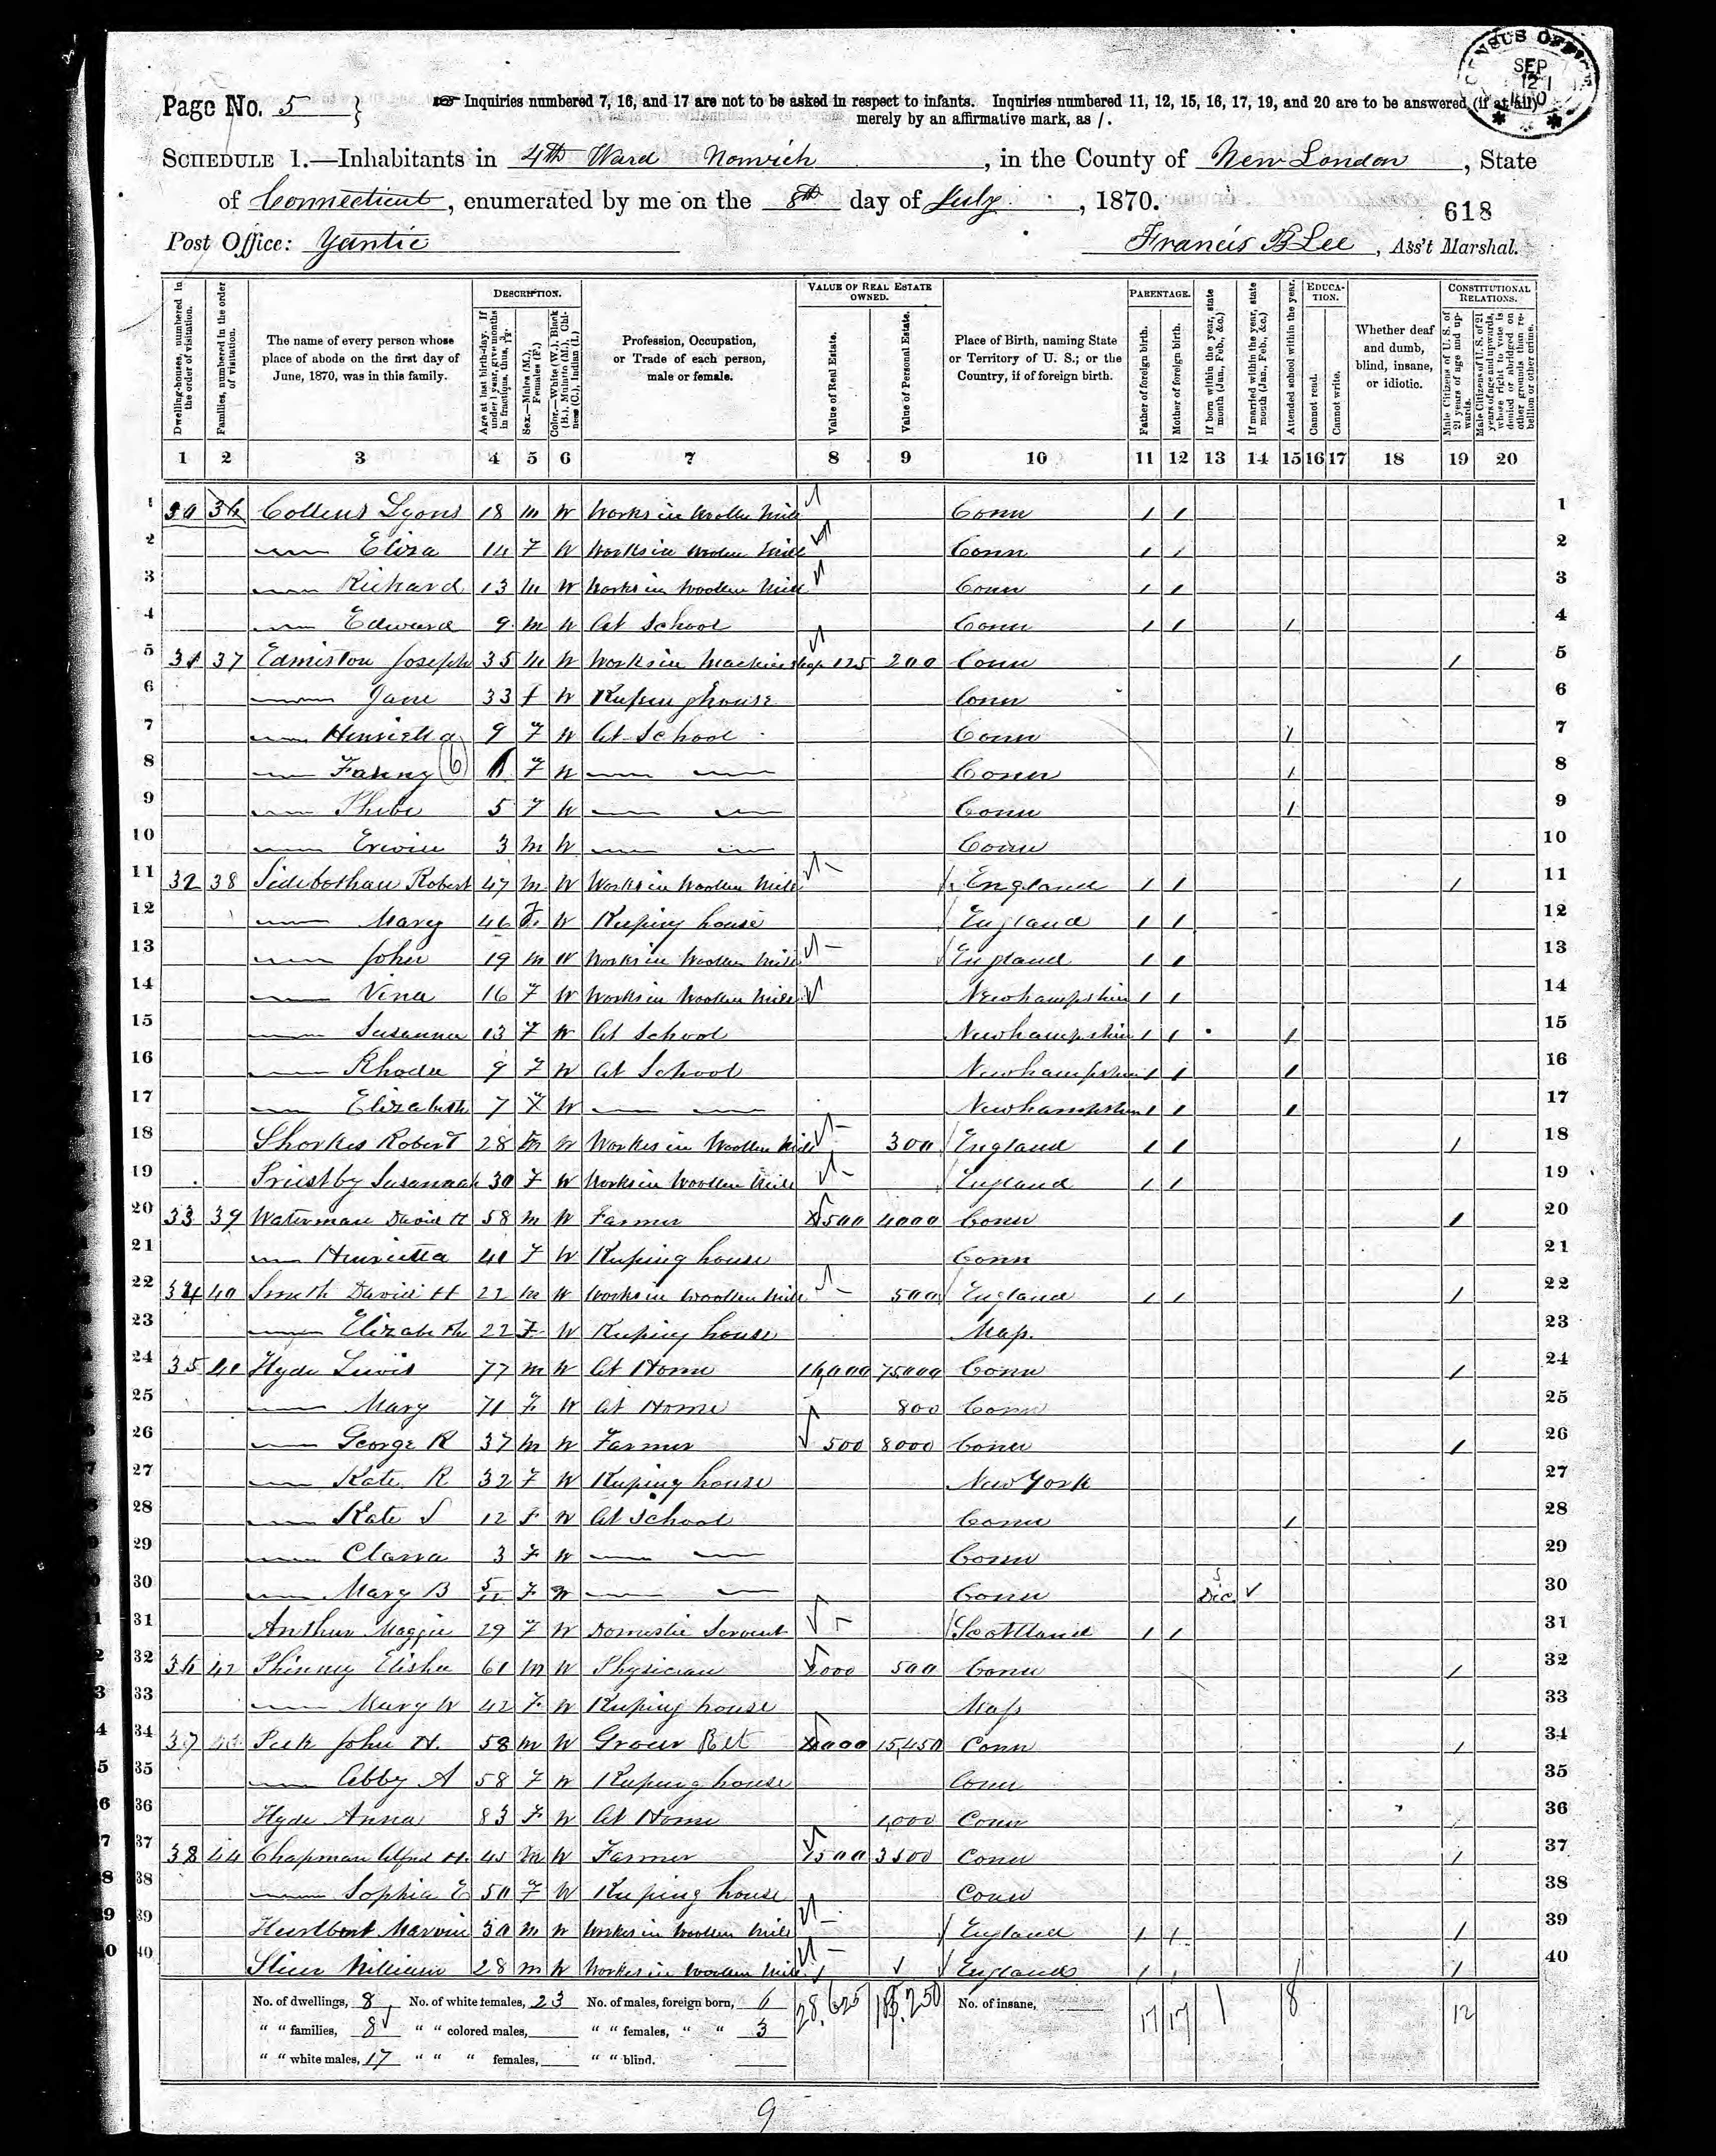 CENSUS OFFICE SEP 12 1870
Page No. 5 } Inquiries numbered 7, 16, and 17 are not to be asked in respect to infants. Inquiries numbered 11, 12, 15, 16, 17, 19, and 20 are to be answered (if at all)
merely by an affirmative mark, as /.
SCHEDULE 1.—Inhabitants in 4th Ward Norwich, in the County of New London, State
of Connecticut, enumerated by me on the 8th day of July, 1870.
618
Post Office: Yantic Francis B Lee, Ass't Marshal.
Dwelling-houses, numbered in the order of visitation.
Families, numbered in the order of visitation.
The name of every person whose place of abode on the first day of June, 1870, was in this family.
DESCRIPTION.
Age at last birth-day. If under 1 year, give months in fractions, thus, 3/12.
Sex.—Males (M.), Females (F.)
Color.—White (W.), Black (B.), Mulatto (M.), Chinese (C.), Indian (I.)
Profession, Occupation, or Trade of each person, male or female.
VALUE OF REAL ESTATE OWNED.
Value of Real Estate.
Value of Personal Estate.
Place of Birth, naming State or Territory of U. S.; or the Country, if of foreign birth.
PARENTAGE.
Father of foreign birth.
Mother of foreign birth.
If born within the year, state month (Jan., Feb., &c.)
If married within the year, state month (Jan., Feb., &c.)
Attended school within the year.
EDUCATION.
Cannot read.
Cannot write.
Whether deaf and dumb, blind, insane, or idiotic.
CONSTITUTIONAL RELATIONS.
Male Citizens of U. S. of 21 years of age and upwards.
Male Citizens of U. S. of 21 years of age and upwards, whose right to vote is denied or abridged on other grounds than rebellion or other crime.
1 2 3 4 5 6 7 8 9 10 11 12 13 14 15 16 17 18 19 20
1 30 36 Collens Lyons 18 m W Works in Woollen Mill Conn / / 1
2 — Eliza 14 F W Works in Woolen Mill Conn / / 2
3 — Richard 13 m W Works in Woollen Mill Conn / / 3
4 — Edward 9 m W At School Conn / / / 4
5 31 37 Edmiston Joseph 35 m W Works in Machine Shop 125 200 Conn / 5
6 — Jane 33 f W Keeping house Conn 6
7 — Henrietta 9 F W At School Conn / 7
8 — Fanny (6) F W — — Conn / 8
9 — Phebe 5 F W — — Conn / 9
10 — Erwin 3 m W — — Conn 10
11 32 38 Sidebotham Robert 47 m W Works in Woollen Mill England / / / 11
12 — Mary 46 F W Keeping house England / / 12
13 — John 19 m W Works in Woollen Mill England / / 13
14 — Nina 16 F W Works in Woollen Mill Newhampshire / / 14
15 — Susanna 13 F W At School Newhampshire / / / 15
16 — Rhoda 9 F W At School Newhampshire / / / 16
17 — Elizabeth 7 F W — — Newhampshire / / / 17
18 Shorkes Robert 28 m W Workes in Woollen Mill 300 England / / / 18
19 Priestby Susannah 30 F W Works in Woollen Mill England / / 19
20 33 39 Waterman David H 58 m W Farmer 500 4000 Conn / 20
21 — Henrietta 41 F W Keeping house Conn 21
22 34 40 Smith David H 22 m W Works in Woollen Mill 500 England / / / 22
23 — Elizabeth 22 F W Keeping house Mass. 23
24 35 41 Hyde Lewis 77 m W At Home 16,000 75,000 Conn / 24
25 — Mary 71 F W At Home 800 Conn 25
26 — George R 37 m W Farmer 500 8000 Conn / 26
27 — Kate R 32 F W Keeping house New York 27
28 — Kate S 12 F W At School Conn / 28
29 — Clara 3 F W — — Conn 29
30 — Mary B 5/12 F W — — Conn Dec. 30
31 Anthur Maggie 29 F W Domestic Servent Scottland / / 31
32 36 42 Phinney Elisha 61 m W Physician 000 500 Conn / 32
33 — Mary W 42 F W Keeping house Mass 33
34 37 43 Peck John H. 58 m W Grocer Ret 000 15,450 Conn / 34
35 — Abby A 58 F W Keeping house Conn 35
36 Hyde Anna 83 F W At Home 1,000 Conn 36
37 38 44 Chapman Alfred H. 45 m W Farmer 1500 3500 Conn / 37
38 — Sophia E 50 F W Keeping house Conn 38
39 Hurlbent Marvin 30 m W Workes in Woollen Mill England / / / 39
40 Slicer William 28 m W Workes in Woollen Mill England / / / 40
No. of dwellings, 8 No. of white females, 23 No. of males, foreign born, 6 28,625 No. of insane, 17 17 1 8 12
" " families, 8 " " colored males, " " females, " " 3
" " white males, 17 " " " females, " " blind.
9